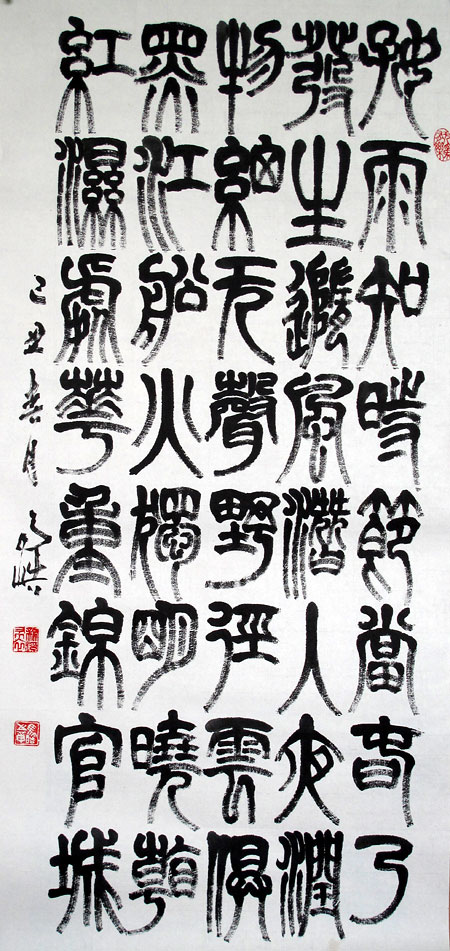 好雨知時節當春乃
發生隨風潛入夜潤
物細无聲野徑雲俱
黑江船火獨明曉看
紅濕處華重錦官城
己丑春月